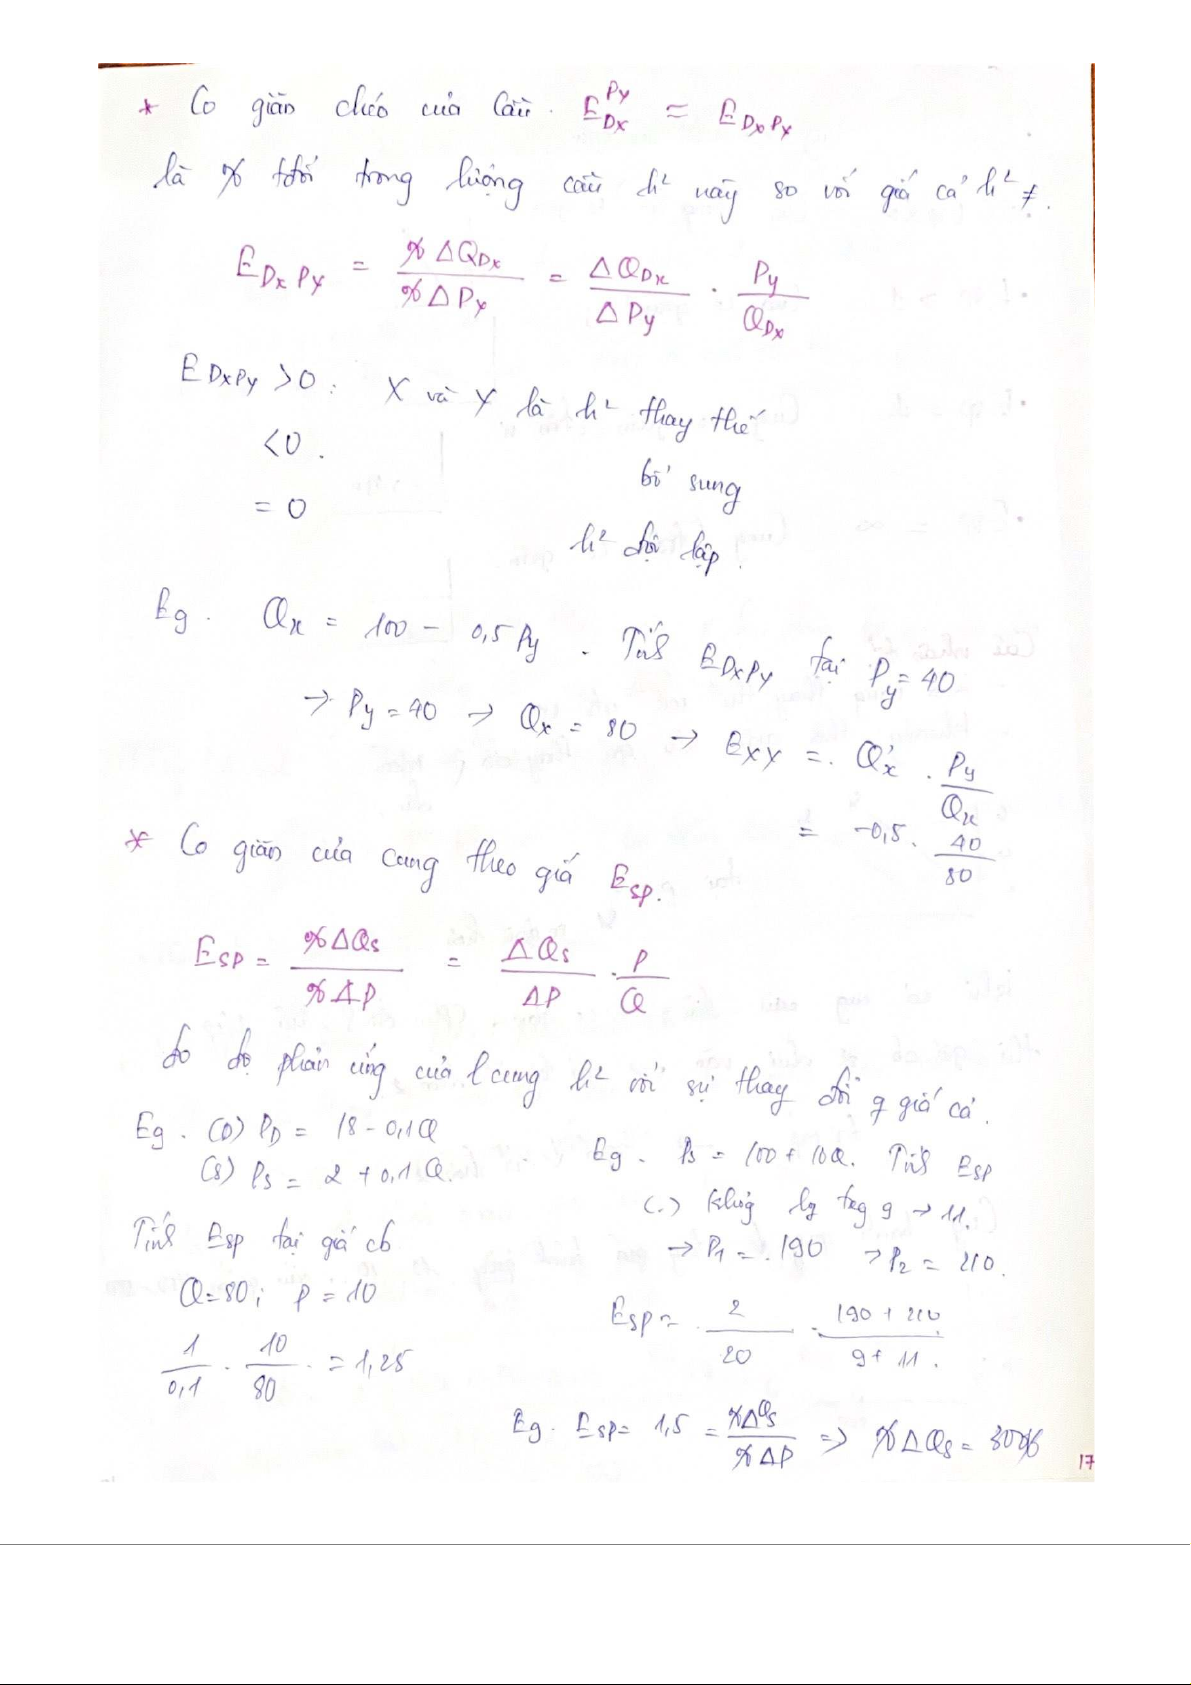 * Co giãn chéo của Cầu. E_{Dx}^{Py} ≈ E_{DxPy}
là % tđổi trong lượng cầu h² này so với giá cả h² ≠.
E_{DxPy} = %ΔQ_{Dx} / %ΔP_y = ΔQ_{Dx} / ΔP_y . P_y / Q_{Dx}
E_{DxPy} > 0 : X và Y là h² thay thế
< 0 . bổ sung
= 0 h² độc lập.
Eg. Qx = 100 - 0,5Py . Tính E_{DxPy} tại Py = 40
→ Py = 40 → Qx = 80 → E_{XY} = . Q'x . Py / Qx
= -0,5 . 40 / 80
* Co giãn của cung theo giá E_{SP}.
E_{SP} = %ΔQs / %ΔP = ΔQs / ΔP . P / Q
đo độ phản ứng của l cung h² với sự thay đổi q giá cả.
Eg. (D) P_D = 18 - 0,1Q
(S) P_S = 2 + 0,1Q.
Tính E_{SP} tại giá cb
Q = 80 ; P = 10
1 / 0,1 . 10 / 80 . = 1,25
Eg. Ps = 100 + 10Q. Tính E_{SP}
(.) khoảng lg tăg 9 → 11.
→ P₁ = . 190 → P₂ = 210.
E_{SP} = 2 / 20 . 190 + 210 / 9 + 11 .
Eg. E_{SP} = 1,5 = %ΔQs / %ΔP ⇒ %ΔQs = 30%
17